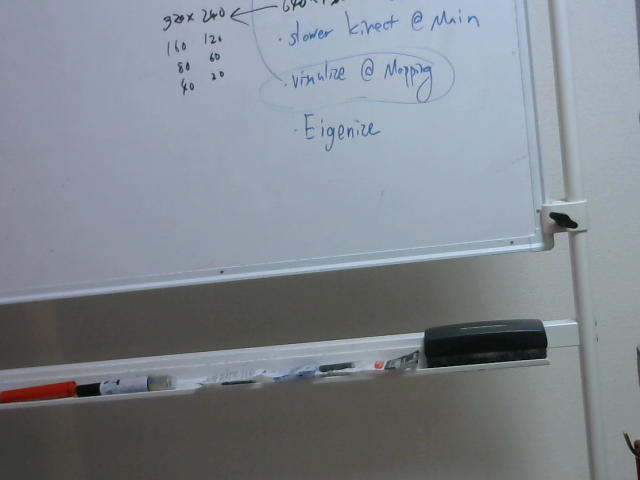 320 x 240 ←
160 120
80 60
40 30
· slower kinect @ Main
· visulize @ Mapping
· Eigenize